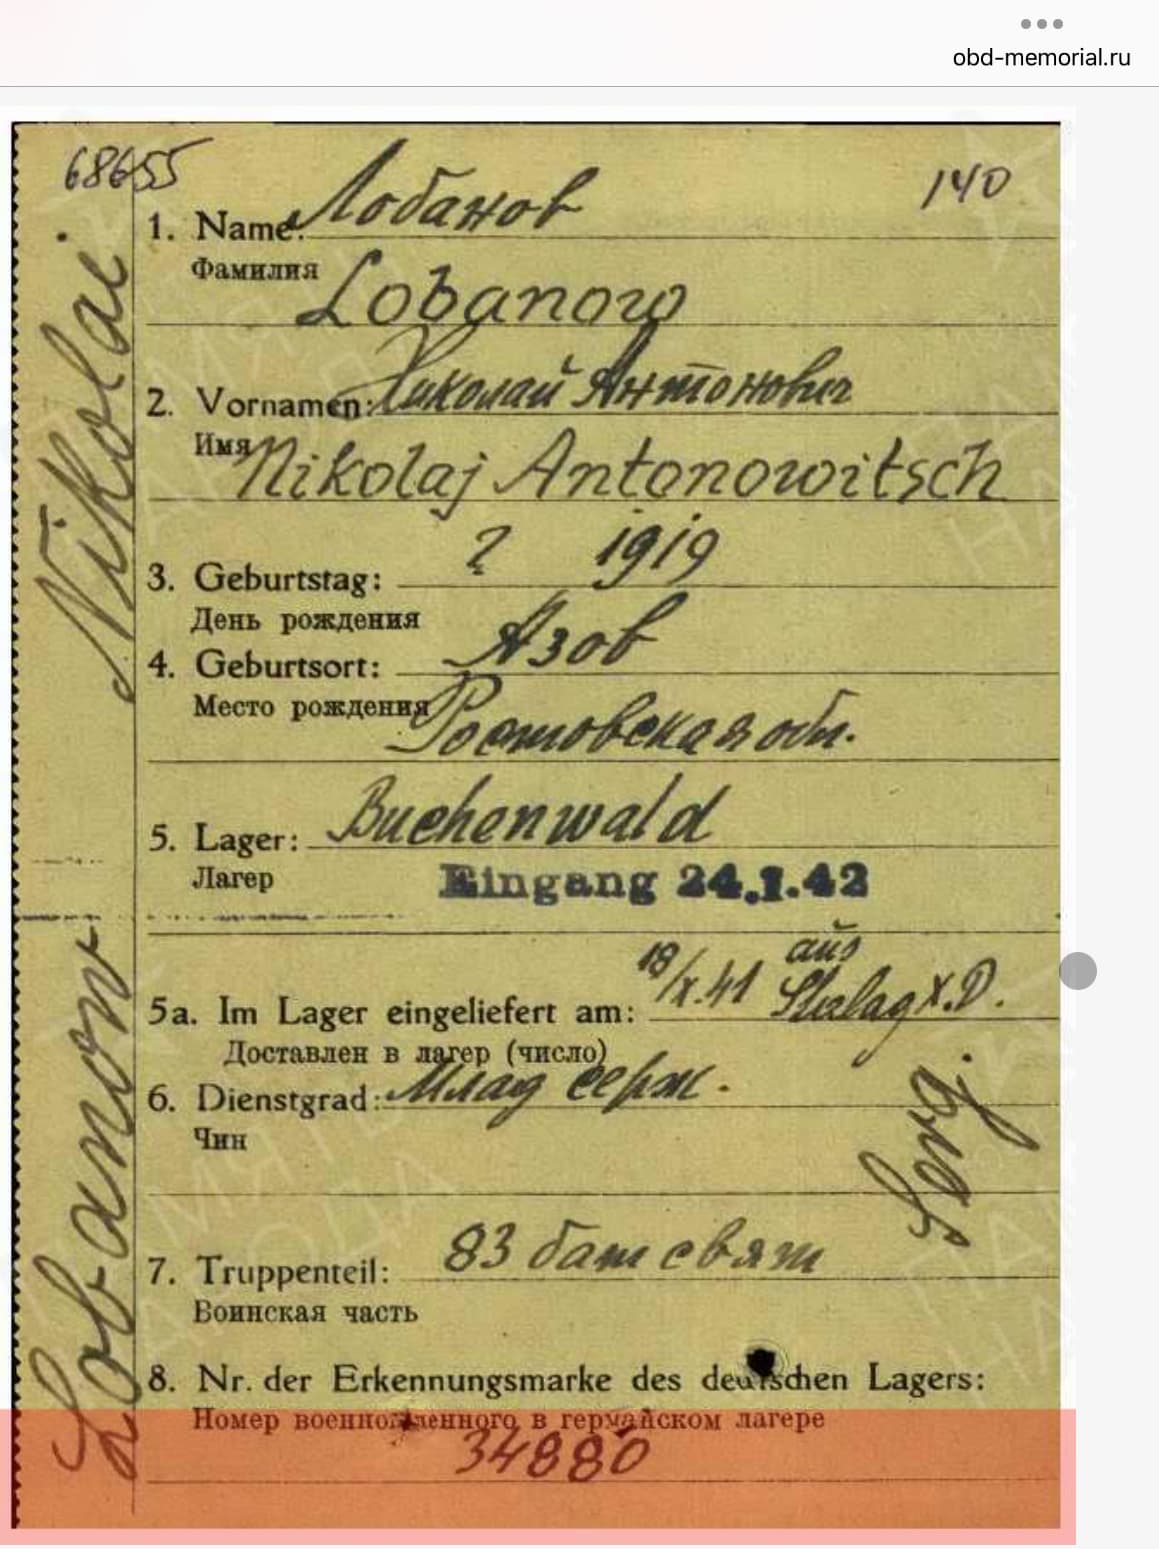 obd-memorial.ru
68655
140
1. Name: Лобанов
Фамилия
Lobanow
2. Vornamen: Николай Антонович
Имя
Nikolaj Antonowitsch
3. Geburtstag: ? 1919
День рождения
4. Geburtsort: Азов
Место рождения
Ростовская обл.
5. Lager: Buchenwald
Лагер
Eingang 24.1.42
5a. Im Lager eingeliefert am: 18/X.41 aus Stalag X.D.
Доставлен в лагер (число)
6. Dienstgrad: Млад серж.
Чин
7. Truppenteil: 83 бат связи
Воинская часть
8. Nr. der Erkennungsmarke des deutschen Lagers:
Номер военнопленного в германском лагере
34880
Lobanow Nikolai